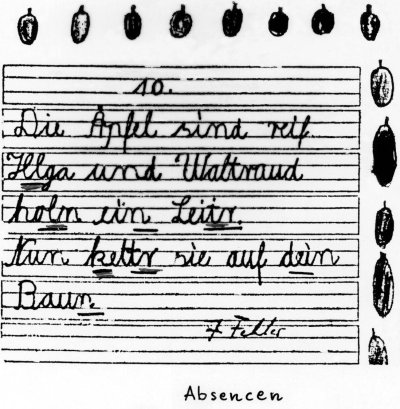 10.
Die Äpfel sind reif.
Hlga und Waltraud
holn ein Leitr.
Nun kettr sie auf dein
Baun
7 Fehler
Absencen